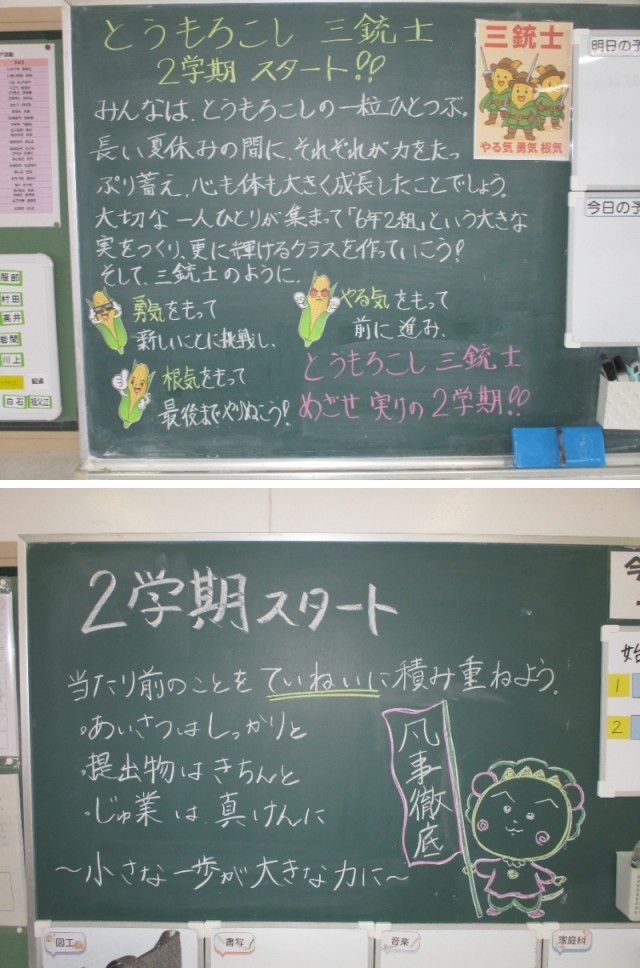 とうもろこし 三銃士
2学期 スタート!!
みんなは、とうもろこしの一粒ひとつぶ。
長い夏休みの間に、それぞれが力をたっ
ぷり蓄え、心も体も大きく成長したことでしょう。
大切な一人ひとりが集まって「6年2組」という大きな
実をつくり、更に輝けるクラスを作っていこう!
そして、三銃士のように、
勇気をもって
新しいことに挑戦し、
やる気をもって
前に進み、
根気をもって
最後までやりぬこう!
とうもろこし 三銃士
めざせ 実りの2学期!!
三銃士
やる気 勇気 根気
明日の予
今日の予
服部
村田
高井
岩間
川上
配達
白石
祖父江
2学期スタート
当たり前のことをていねいに積み重ねよう。
・あいさつはしっかりと
・提出物はきちんと
・じゅ業は真けんに
〜小さな一歩が大きな力に〜
凡事徹底
今
始
1
2
図工
書写
音楽
家庭科